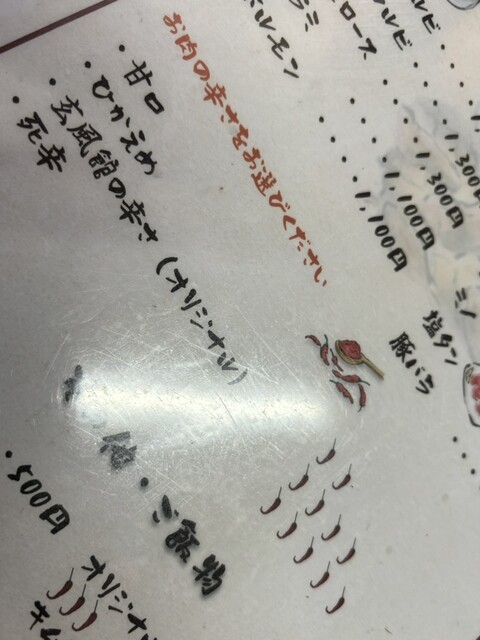 ルビ
ロース
ラミ
ホルモン
1,300円
1,300円
1,100円
1,100円
ミノ
塩タン
豚バラ
お肉の辛さをお選びください
・甘口
・ひかえめ
・玄風館の辛さ(オリジナル)
・死辛
他・ご飯物
・500円
オリジナル
キム